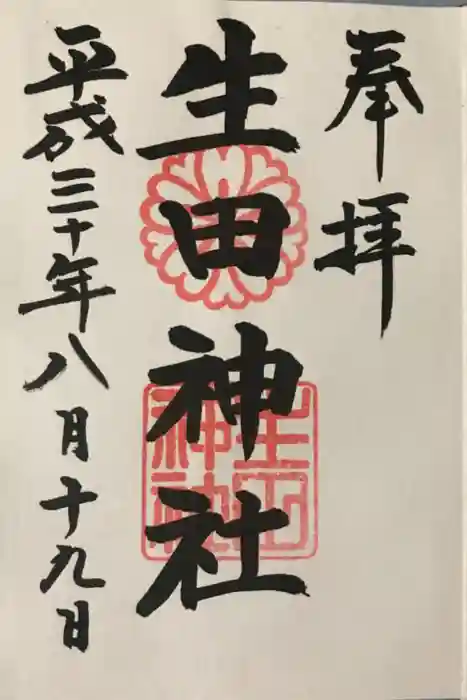 奉拝
生田神社
平成三十年八月十九日
生田神社